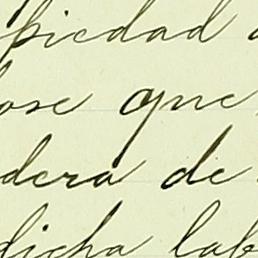 piedad
ose que
dera de
dicha lab